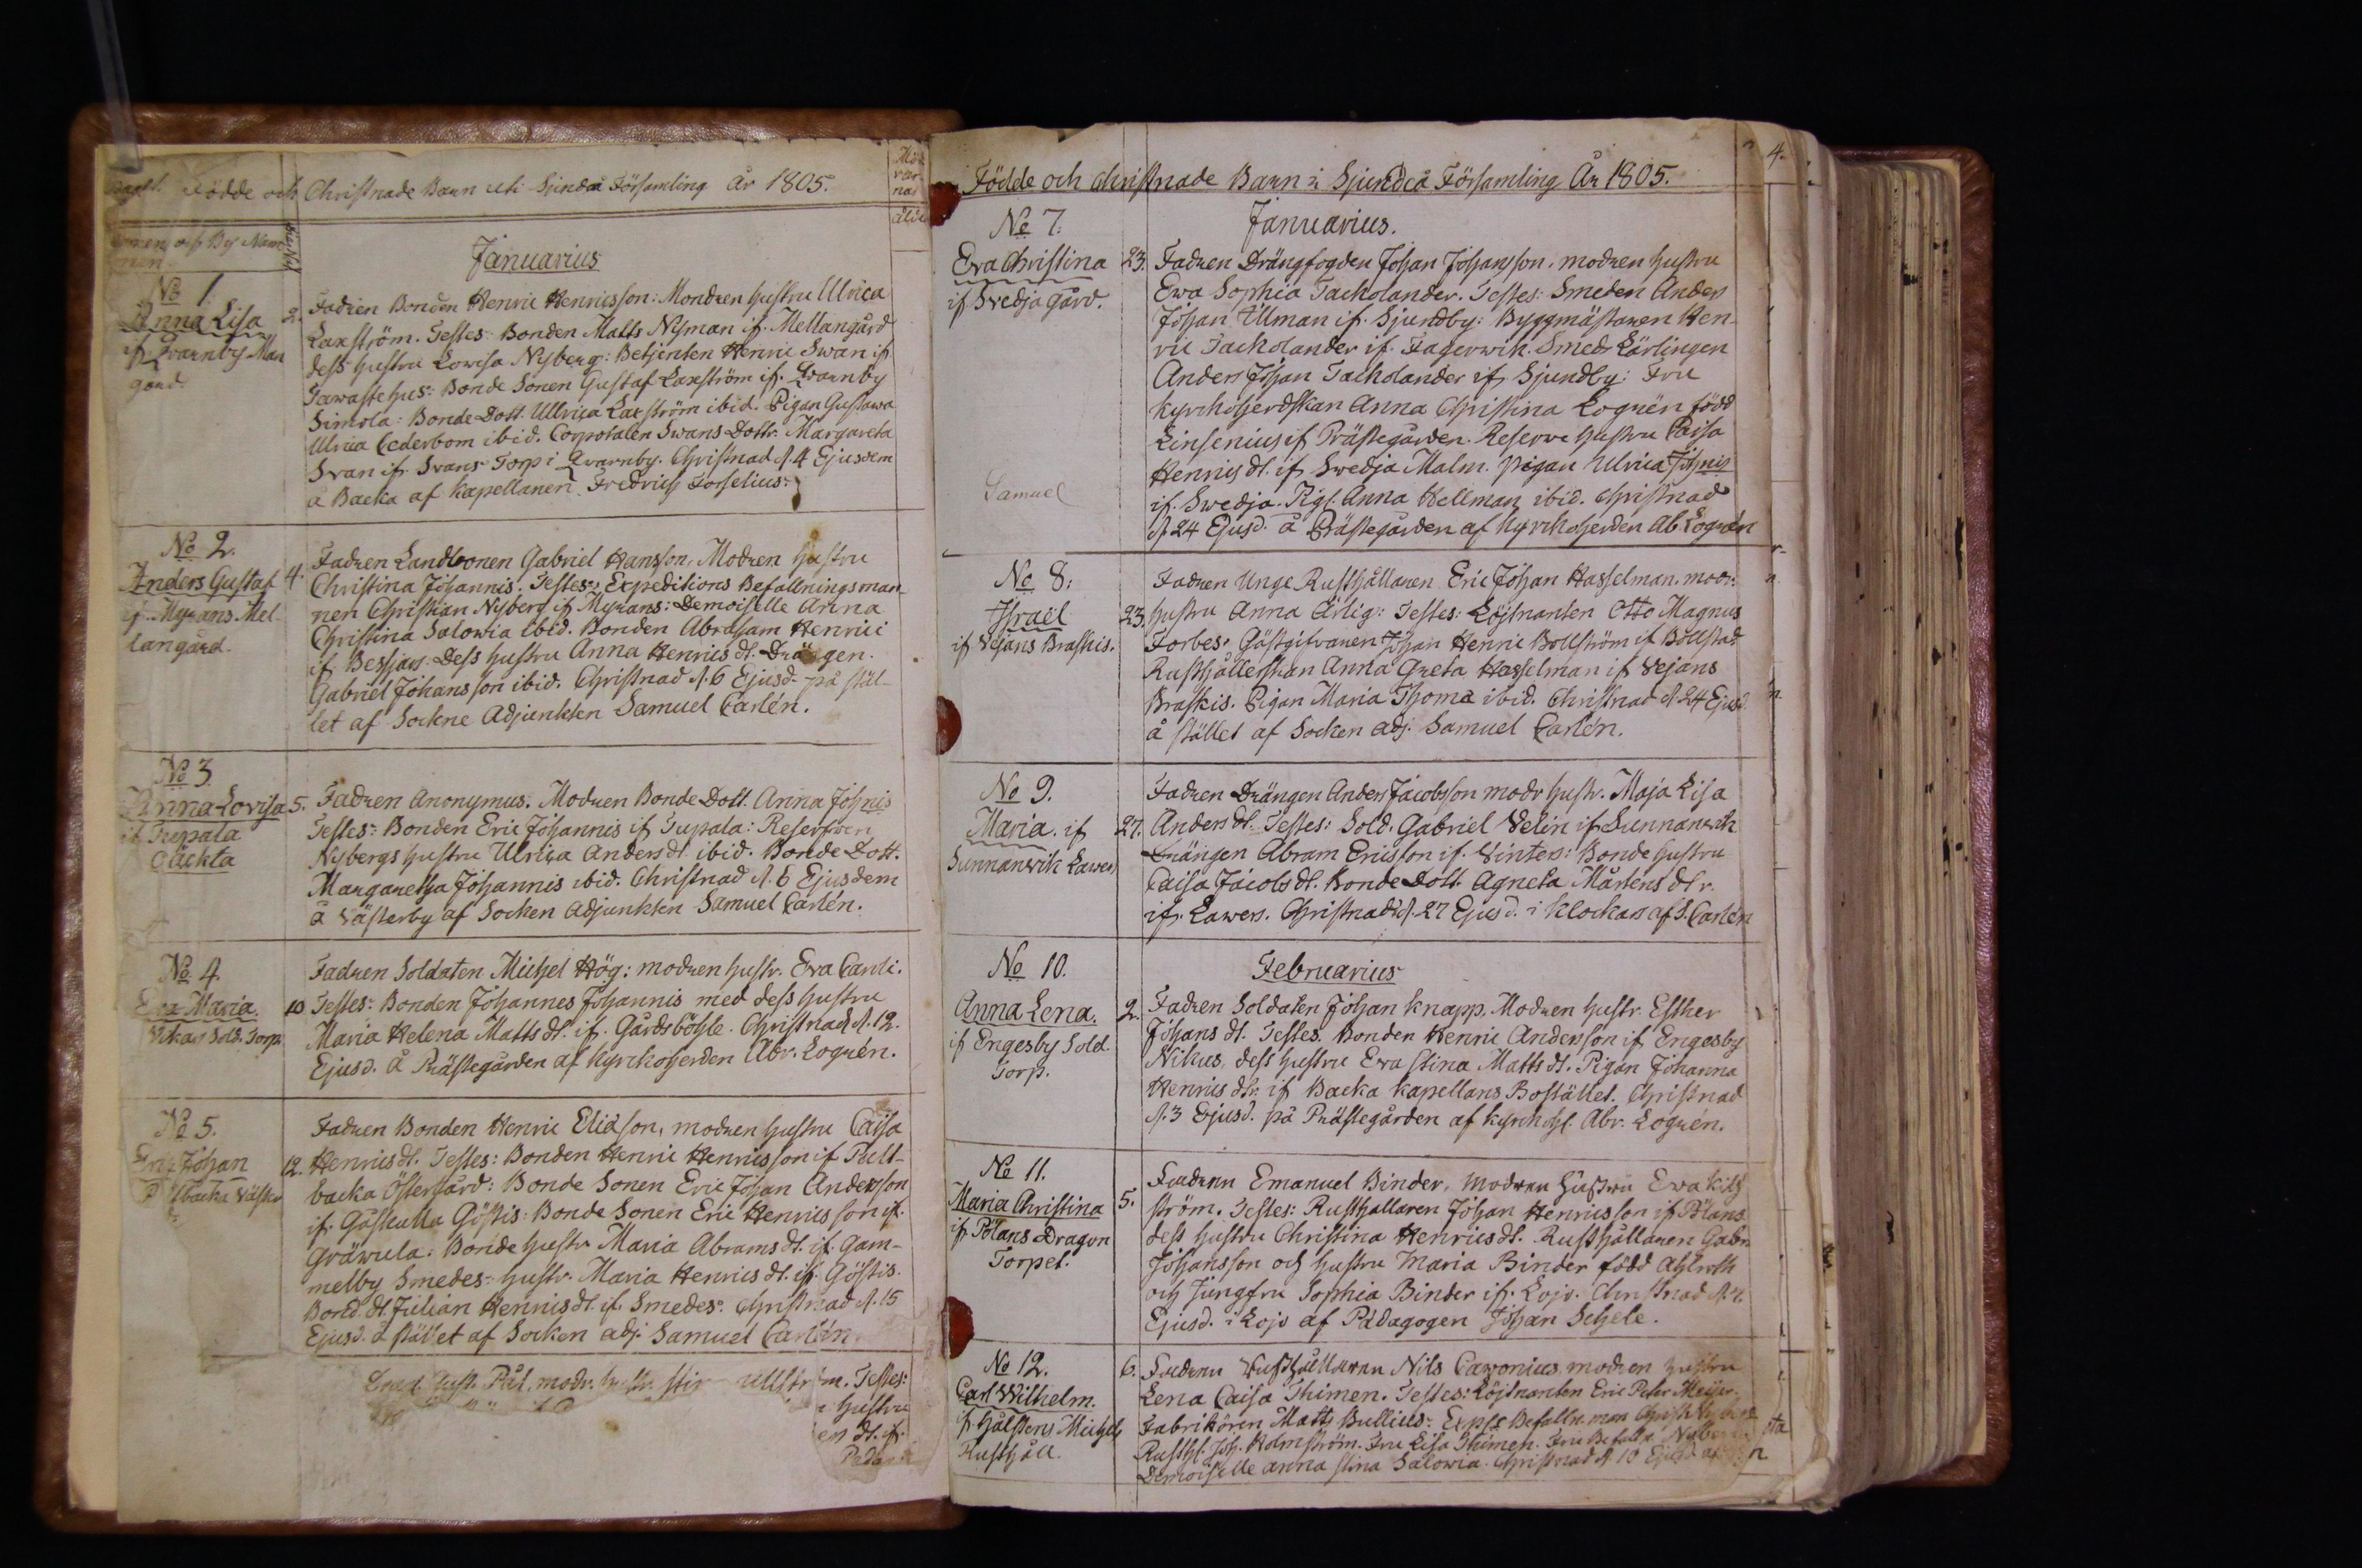 Födde och Christnade Barn uti Sjundeå Församling År 1805.
Januarius
No 1.
Anna Lisa
if Qvarnby Man
gård
2. Fadren Bonden Henric Henricsson: Modren hustru Ulrica
Laxström. Testes: Bonden Matts Nyman if. Mellangård
dess hustru Lovisa Nyberg: Betjenten Henric Swan if
Tawastehus: Bonde Sonen Gustaf Laxström if. Qvarnby
Simola: Bonde Dott. Ullrica Laxström ibid. Pigan Gustawa
Ulrica Cederbom ibid. Corporalen Swans Dottr. Margareta
Svan if. Svans Torp i Qvarnby. Christnad d. 4 Ejusdem
å Backa af kapellanen Fredrich Forselius.
No 2.
Anders Gustaf
if. Myrans Mel-
langård.
4. Fadren Landbonen Gabriel Hansson. Modren hustru
Christina Johannis. Testes: Expeditions Befallningsman
nen Christian Nyberg if Myrans: Demoiselle Anna
Christina Salovia ibid. Bonden Abraham Henrici
if Bessjars: Dess hustru Anna Henrics dt. Drängen.
Gabriel Johansson ibid. Christnad d. 6 Ejusd. på stäl-
let af Sockne Adjunkten Samuel Carlén.
No 3.
Anna Lovisa
if Tupala
Cäckta
5. Fadren Anonymus. Modren Bonde Dott. Anna Johnis
Testes: Bonden Eric Johannis if Tupala: Reserfven
Nybergs hustru Ulrica Anders dt. ibid. Bonde Dott.
Margaretha Johannis ibid. Christnad d. 6 Ejusdem
å Västerby af Socken Adjunkten Samuel Carlén.
No 4.
Eva Maria.
Vikars Sold. Torp
10 Fadren Soldaten Michel Hög: modren hustr. Eva Carli.
Testes: Bonden Johannes Johannis med dess hustru
Maria Helena Matts dt. if. Gårdsböhle. Christnad d. 12.
Ejusd. å Prästegården af kyrkoherden Abr. Lognén.
No 5.
Eric Johan
backa Väster
12. Fadren Bonden Henric Eliasson, modren hustru Caisa
Henrics dt. Testes: Bonden Henric Henricsson if Palt-
backa Östergård: Bonde Sonen Eric Johan Andersson
if. Gåskulla Göstis: Bonde Sonen Eric Henricsson if.
Gräwula: Bonde hustr. Maria Abrams dt. if. Gam-
melby Smedes: hustr. Maria Henrics dt. if. Göstis.
Bond. dt. Julian Henrics dt. if. Smedes. Christnad d. 15
Ejusd. å stället af Socken adj. Samuel Carlén.
modr. Testes:
hustru
dt. if.
Födde och Christnade Barn i Sjundeå Församling År 1805.
4.
No 7.
Januarius.
Eva Christina
if Svedja gård.
Samuel
23. Fadren Drängfogden Johan Johansson, modren hustru
Ewa Sophia Tackolander. Testes: Smeden Anders
Johan Ullman if. Sjundby: Byggmästaren Hen-
ric Tackolander if. Fagerwik. Smeds Lärlingen
Anders Johan Tackolander if. Sjundby: Fru
kyrckoherdskan Anna Christina Lognén född
Linsenius if Prästegården. Reserve hustru Caisa
Henrics dt. if Swedja Malm. pigan Ulrica Johnis
if. Swedja. Pigl. Anna Hellman ibid. Christnad
d. 24 Ejusd. å Prästegården af kyrckoherden Ab. Lognén
No 8.
Israël
if Vejans Braskis.
23. Fadren Unge Rusthållaren Eric Johan Hasselman. modr.
hustru Anna Ärlig: Testes: Löjtnanten Otto Magnus
Forbes. Gästgifvaren Johan Henric Bollström if Bollstad
Rusthållerskan Anna Greta Hasselman if Vejans
Braskis. Pigan Maria Thoma ibid. Christnad d. 24 Ejusd.
å stället af Socken adj. Samuel Carlén.
No 9.
Maria. if
Sunnanvik Lawers
27. Fadren Drängen Anders Jacobsson modr hustr. Maja Lisa
Anders dt. Testes: Sold. Gabriel Velin if Sunnanvik
Drängen Abram Ericsson if. Vinters: Bonde hustru
Caisa Jacobs dt. Bonde Dott. Agneta Mårtens dtr.
if. Lawers. Christnad d. 27 Ejusd. i klockars af S. Carlén
No 10.
Februarius
Anna Lena.
if Engesby Sold.
Torp.
2. Fadren Soldaten Johan Knapp. Modren hustr. Esther
Johans dt. Testes. Bonden Henric Andersson if Engesby
Nikus, dess hustru Eva Stina Matts dt. Pigan Johanna
Henrics dtr. if Backa kapellans Bostället. Christnad
d. 3 Ejusd. på Prästegården af kyrckoh. Abr. Lognén.
No 11.
Maria Christina
if Pölans Dragon
Torpet.
5. Fadren Emanuel Binder, Modren Hustru Ewa Kih
ström. Testes: Rusthållaren Johan Henricsson if Pölans
dess hustru Christina Henrics dt. Rusthållaren Gabr.
Johansson och hustru Maria Binder född Ahlroth
och Jungfru Sophia Binder if. Lojo. Christnad d.
Ejusd. i Lojo af Pädagogen Johan Schele.
No 12.
Carl Wilhelm.
if Hålstens Michels
Rusthåll.
6. Fadren Rusthållaren Nils Cavonius modren hustru
Lena Caisa Thimen. Testes: Löjtnanten Eric Peter Meijer.
Fabrikören Matts Bullius: Exps Befalln. man Christ. Nyberg
Rusth. Joh. Holmström. Fru Lisa Thimen. Fru Befalln. Nyberg
Demoiselle Anna Stina Salowia. Christnad d. 10 Ejusd.